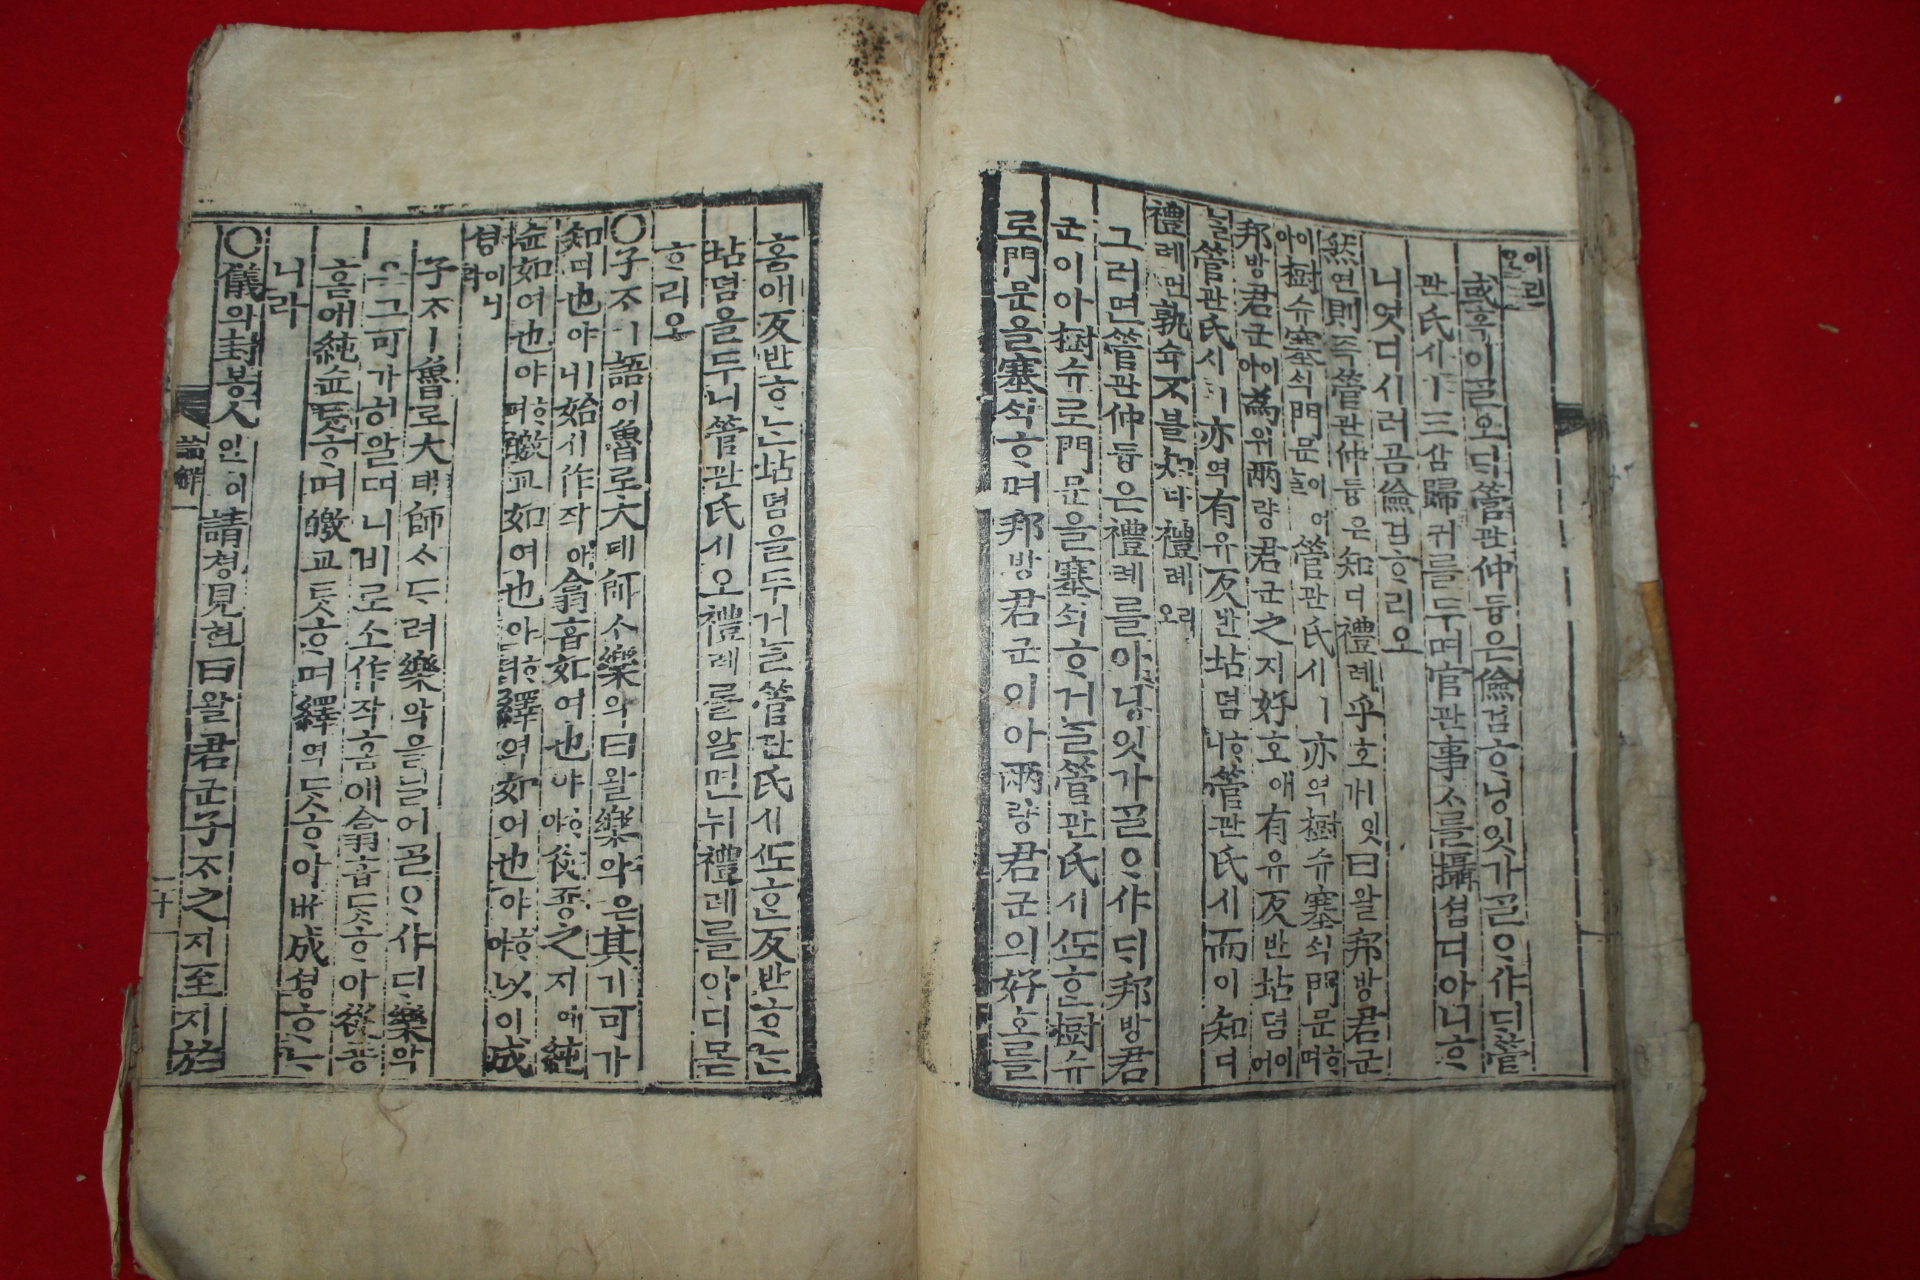 或혹이ᄀᆞᆯ오ᄃᆡ管관仲듕은儉검ᄒᆞ니ᇰ잇가ᄀᆞᆯᄋᆞ샤ᄃᆡ管
관氏시ㅣ三삼歸귀를두며官관事ᄉᆞ를攝셥디아니ᄒᆞ
니엇디시러곰儉검ᄒᆞ리오
然연則즉管관仲듕은知디禮례乎호ㅣ잇가曰왈邦방君군
이아樹슈塞식門문이어늘管관氏시ㅣ亦역樹슈塞식門문ᄒᆞ며
邦방君군이아爲위兩량君군之지好호애有유反반坫뎜이어
늘管관氏시ㅣ亦역有유反반坫뎜ᄒᆞ니管관氏시而이知디
禮례면孰슉不블知디禮례리오
그러면管관仲듕은禮례를아니ᇰ잇가ᄀᆞᆯᄋᆞ샤ᄃᆡ邦방君
군이아樹슈로門문을塞식ᄒᆞ거늘管관氏시ᄯᅩᄒᆞᆫ樹슈
로門문을塞식ᄒᆞ며邦방君군이아兩량君군의好호를
홈애反반ᄒᆞᄂᆞᆫ坫뎜을두거늘管관氏시ᄯᅩᄒᆞᆫ反반ᄒᆞᄂᆞᆫ
坫뎜을두니管관氏시오禮례를알면뉘禮례를아디몯
ᄒᆞ리오
○子ᄌᆞㅣ語어魯로大태師ᄉᆞ樂악曰왈樂악은其기可가
知디也야ㅣ니始시作작애翕흡如여也야ᄒᆞ야從죵之지애純
슌如여也야ᄒᆞ며皦교如여也야ᄒᆞ며繹역如여也야ᄒᆞ야以이成
셩이니라
子ᄌᆞㅣ魯로大태師ᄉᆞᄃᆞ려樂악을닐어ᄀᆞᆯᄋᆞ샤ᄃᆡ樂악
은그可가히알띠니비로소作작홈애翕흡ᄃᆞᆺᄒᆞ야從죵
홈애純슌ᄃᆞᆺᄒᆞ며皦교ᄃᆞᆺᄒᆞ며繹역ᄃᆞᆺᄒᆞ야ᄡᅥ成셩ᄒᆞᄂᆞ
니라
○儀의封봉人인이請쳥見현曰왈君군子ᄌᆞ之지至지於
論解一